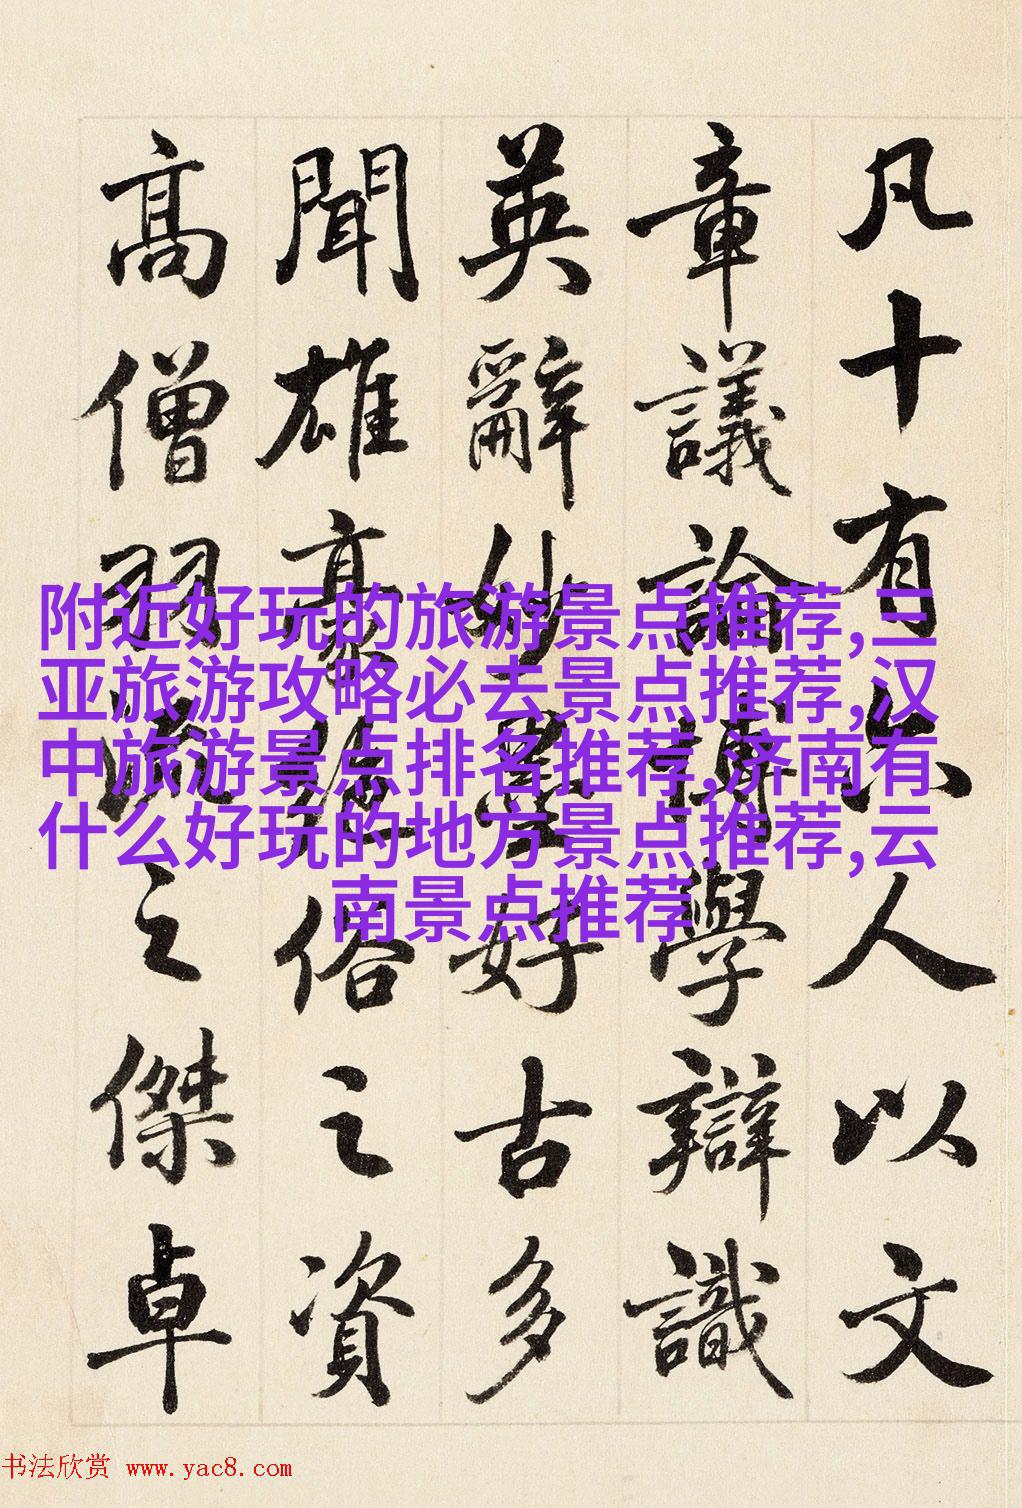 凡十有六人以文
章議論博學辯識
英辭妙墨好古多
聞雄豪絕俗之資
高僧羽流之傑卓
附近好玩的旅游景点推荐,三
亚旅游攻略必去景点推荐,汉
中旅游景点排名推荐,济南有
什么好玩的地方景点推荐,云
南景点推荐
书法欣赏 www.yac8.com